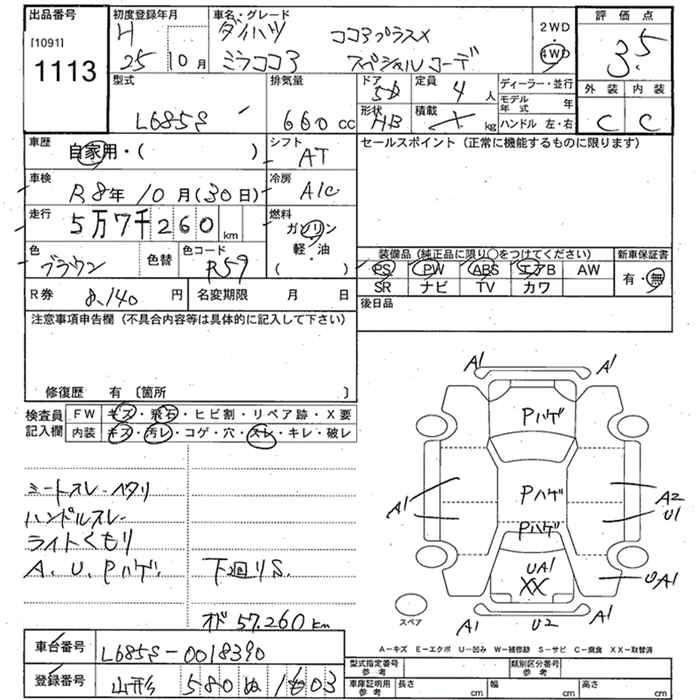 出品番号
[1091]
1113
初度登録年月
H
25 10月
車名・グレード
ダイハツ ココアプラスX
ミラココア スペシャルコーデ
2WD
4WD
評価点
3.5
外装 内装
C C
型式
L685S
排気量
660cc
ドア
5D
定員
4人
形状
HB
積載
kg
ディーラー・並行
モデル年式 年
ハンドル 左・右
車歴
自家用・( )
シフト
AT
セールスポイント (正常に機能するものに限ります)
車検
R8年10月(30日)
冷房
A/C
走行
5万7千260km
燃料
ガソリン
軽・油
( )
色
ブラウン
色替
色コード
R59
装備品 (純正品に限り○をつけてください)
PS PW ABS エアB AW
SR ナビ TV カワ
新車保証書
有・無
R券 8,140円
名変期限 月 日
後日品
注意事項申告欄 (不具合内容等は具体的に記入して下さい)
修復歴 有 〔箇所 〕
検査員記入欄
FW キズ・飛石・ヒビ割・リペア跡・X要
内装 キズ・汚レ・コゲ・穴・スレ・キレ・破レ
シートスレ・ヘタリ
ハンドルスレ
ライトくもり
A、U、Pハゲ
下回りS
オド57,260km
A1
A1
Pハゲ
Pハゲ
Pハゲ
A1
A2
U1
UA1
XX
UA1
A1
U2
A1
スペア
A-キズ E-エクボ U-凹み W-補修跡 S-サビ C-腐食 XX-取替済
車台番号
L685S-0018390
登録番号
山形 580 ぬ 1603
型式指定番号
参考
類別区分番号
参考
車庫証明用
参考
長さ cm
幅 cm
高さ cm